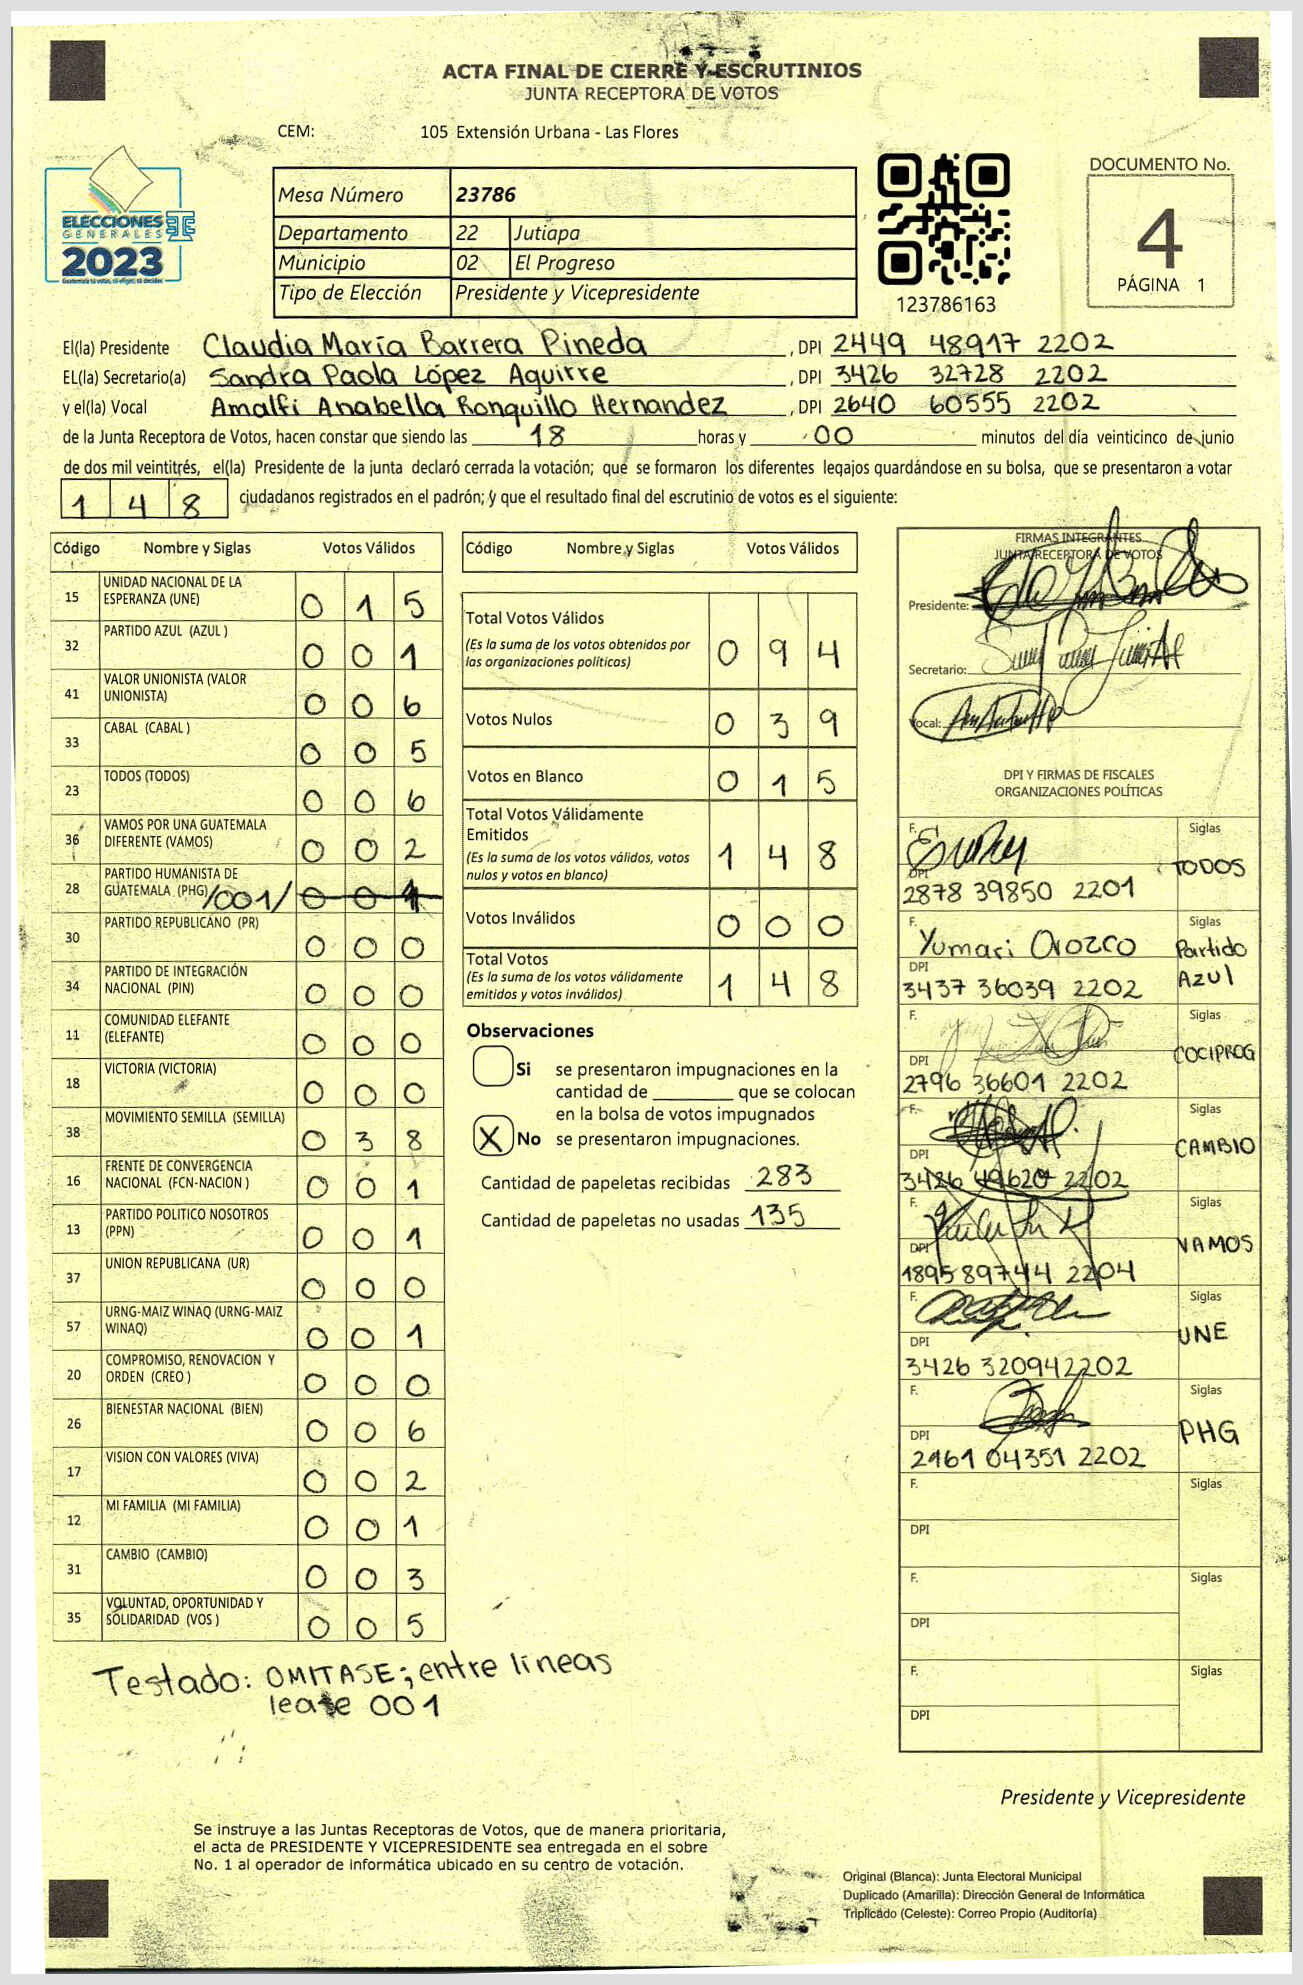 ACTA FINAL DE CIERRE Y ESCRUTINIOS
JUNTA RECEPTORA DE VOTOS
CEM: 105 Extensión Urbana - Las Flores
ELECCIONES
GENERALES
2023
Mesa Número 23786
Departamento 22 Jutiapa
Municipio 02 El Progreso
Tipo de Elección Presidente y Vicepresidente
123786163
DOCUMENTO No.
4
PÁGINA 1
El(la) Presidente Claudia María Barrera Pineda, DPI 2449 48917 2202
EL(la) Secretario(a) Sandra Paola López Aguirre, DPI 3426 32728 2202
y el(la) Vocal Amalfi Anabella Ronquillo Hernandez, DPI 2640 60555 2202
de la Junta Receptora de Votos, hacen constar que siendo las 18 horas y 00 minutos del día veinticinco de junio
de dos mil veintitrés, el(la) Presidente de la junta declaró cerrada la votación; que se formaron los diferentes legajos quardándose en su bolsa, que se presentaron a votar
148 ciudadanos registrados en el padrón; y que el resultado final del escrutinio de votos es el siguiente:
Código Nombre y Siglas Votos Válidos
15 UNIDAD NACIONAL DE LA ESPERANZA (UNE) 0 1 5
32 PARTIDO AZUL (AZUL ) 0 0 1
41 VALOR UNIONISTA (VALOR UNIONISTA) 0 0 6
33 CABAL (CABAL ) 0 0 5
23 TODOS (TODOS) 0 0 6
36 VAMOS POR UNA GUATEMALA DIFERENTE (VAMOS) 0 0 2
28 PARTIDO HUMANISTA DE GUATEMALA (PHG) /001/ 0 0 1
30 PARTIDO REPUBLICANO (PR) 0 0 0
34 PARTIDO DE INTEGRACIÓN NACIONAL (PIN) 0 0 0
11 COMUNIDAD ELEFANTE (ELEFANTE) 0 0 0
18 VICTORIA (VICTORIA) 0 0 0
38 MOVIMIENTO SEMILLA (SEMILLA) 0 3 8
16 FRENTE DE CONVERGENCIA NACIONAL (FCN-NACION ) 0 0 1
13 PARTIDO POLITICO NOSOTROS (PPN) 0 0 1
37 UNION REPUBLICANA (UR) 0 0 0
57 URNG-MAIZ WINAQ (URNG-MAIZ WINAQ) 0 0 1
20 COMPROMISO, RENOVACION Y ORDEN (CREO ) 0 0 0
26 BIENESTAR NACIONAL (BIEN) 0 0 6
17 VISION CON VALORES (VIVA) 0 0 2
12 MI FAMILIA (MI FAMILIA) 0 0 1
31 CAMBIO (CAMBIO) 0 0 3
35 VOLUNTAD, OPORTUNIDAD Y SOLIDARIDAD (VOS ) 0 0 5
Testado: OMITASE; entre lineas
lease 001
Código Nombre y Siglas Votos Válidos
Total Votos Válidos 0 9 4
(Es la suma de los votos obtenidos por
las organizaciones políticas)
Votos Nulos 0 3 9
Votos en Blanco 0 1 5
Total Votos Válidamente
Emitidos 1 4 8
(Es la suma de los votos válidos, votos
nulos y votos en blanco)
Votos Inválidos 0 0 0
Total Votos 1 4 8
(Es la suma de los votos válidamente
emitidos y votos inválidos)
Observaciones
Si se presentaron impugnaciones en la
cantidad de ________ que se colocan
en la bolsa de votos impugnados
X No se presentaron impugnaciones.
Cantidad de papeletas recibidas 283
Cantidad de papeletas no usadas 135
FIRMAS INTEGRANTES
JUNTA RECEPTORA DE VOTOS
Presidente:
Secretario:
Vocal:
DPI Y FIRMAS DE FISCALES
ORGANIZACIONES POLÍTICAS
F. Siglas
DPI TODOS
2878 39850 2201
F. Yumari Orozco Siglas
DPI Partido Azul
3437 36039 2202
F. Siglas
DPI COCIPROG
2796 36601 2202
F. Siglas
DPI CAMBIO
3426 49620 2202
F. Siglas
DPI VAMOS
1895 89744 2204
F. Siglas
DPI UNE
3426 32094 2202
F. Siglas
DPI PHG
2461 04351 2202
F. Siglas
DPI
F. Siglas
DPI
F. Siglas
DPI
Presidente y Vicepresidente
Se instruye a las Juntas Receptoras de Votos, que de manera prioritaria,
el acta de PRESIDENTE Y VICEPRESIDENTE sea entregada en el sobre
No. 1 al operador de informática ubicado en su centro de votación.
Original (Blanca): Junta Electoral Municipal
Duplicado (Amarilla): Dirección General de Informática
Triplicado (Celeste): Correo Propio (Auditoría)